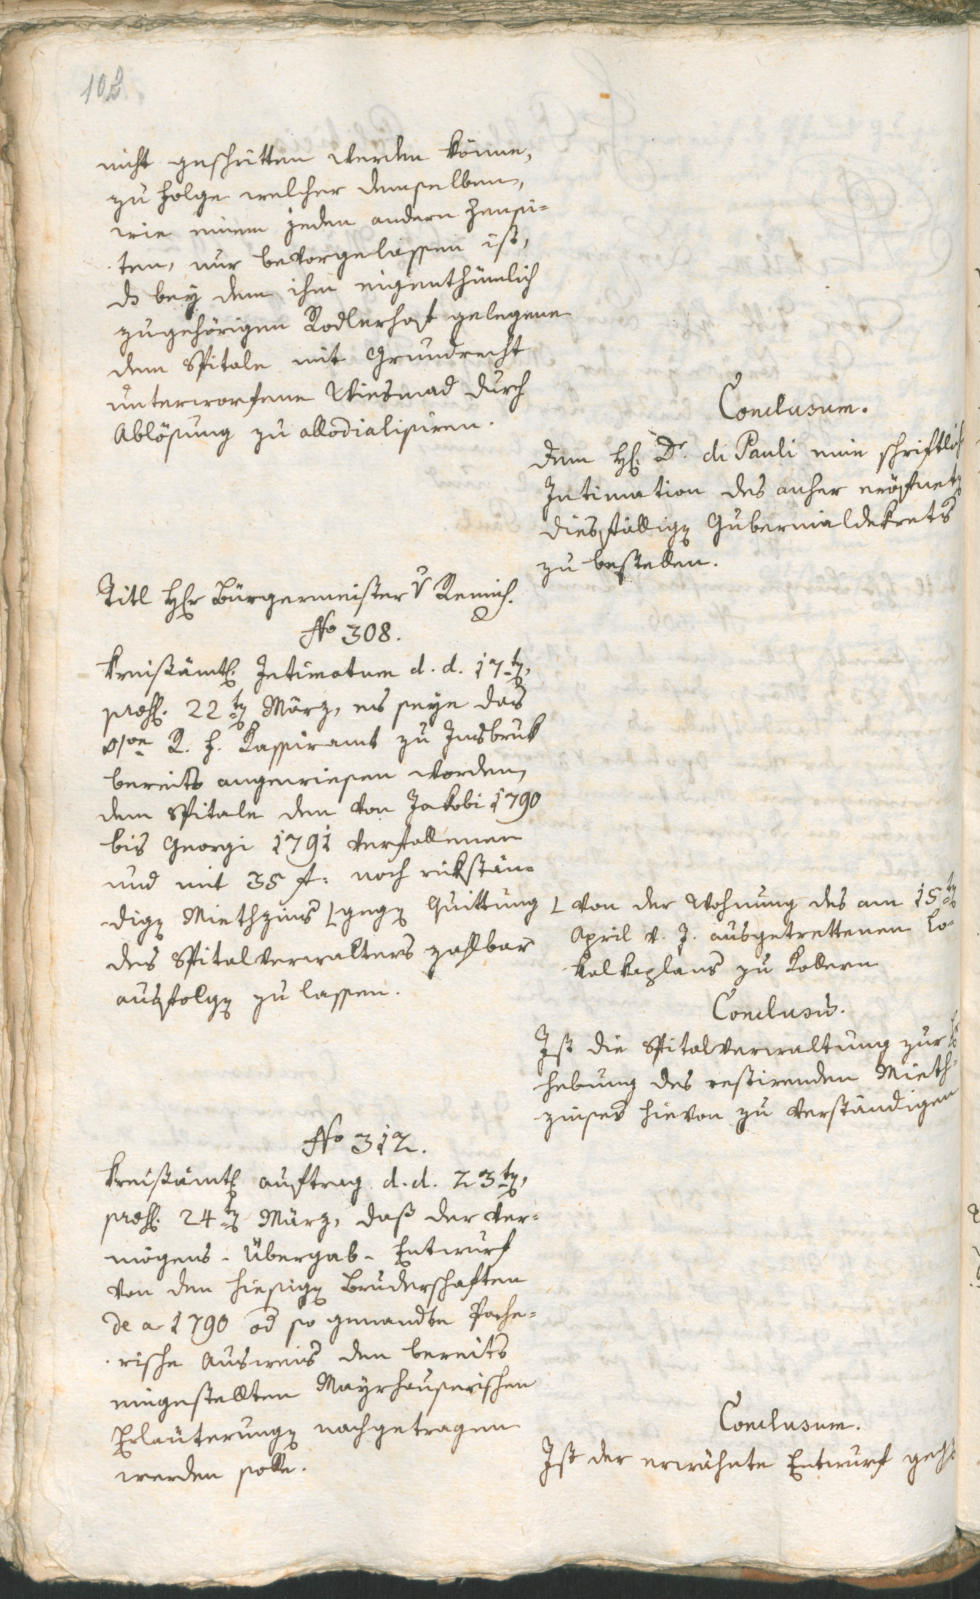 102
nicht geschritten werden könne,
zu Folge welcher demselben,
wie einem jeden andern Zensi-
ten, nur bevorgelassen ist,
bey dem ihm eigenthümlich
zugehörigen Rodlerhof gelegene
dem Spitale mit Grundrecht
unterworfene Wiesmad durch
Ablösung zu allodialisiren.
Conclusum.
Dem H: Dr. di Pauli eine schriftlich
Intimation des anher eröfneten
diesfällig Gubernialdekrets
zu bestellen.
Titl Hr Bürgermeister v Remich.
No 308.
Kreisämtl: Intimatum d. d. 17t,
præs. 22t März, es seye das
K. K. Kassieramt zu Insbruk
bereits angewiesen worden,
dem Spitale den von Jakobi 1790
bis Georgi 1791 verfallenen
und mit 35 f: noch rükstän-
dig Miethzins Ⱶ geg Quittung
des Spitalverwalters zahlbar
ausfolg zu lassen.
Ⱶ von der Wohnung des am 15t
April v. J. ausgetrettenen Lo-
kalkaplans zu Kollern
Conclusum.
Ist die Spitalverwaltung zur Er
hebung des restirenden Mieth-
zinses hievon zu verständigen
No 312.
Kreisämtl auftrag d. d. 23t,
præs. 24t März, daß der Ver-
mögens-Übergab-Entwurf
von den hiesig Bruderschaften
de a 1790 od so genandte Pache-
rische Ausweis den bereits
eingestellten Mayrhauserischen
Erläuterung nachgetragen
werden solle.
Conclusum.
Ist der erwähnte Entwurf geh